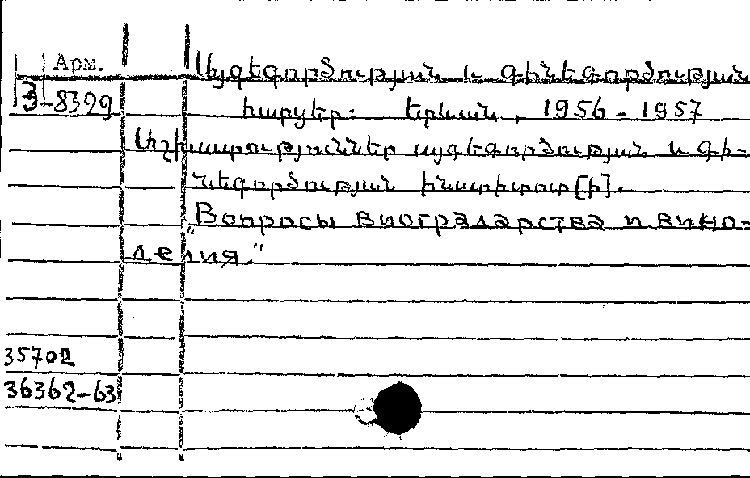 Арм.
Այգեգործության և գինեգործության
3-8399
հարցեր: Երևան, 1956-1957
Աշխատություններ այգեգործության և գի-
նեգործության ինստիտուտ[ի].
"Вопросы виоградарства и вино-
делия."
35702
36362-63